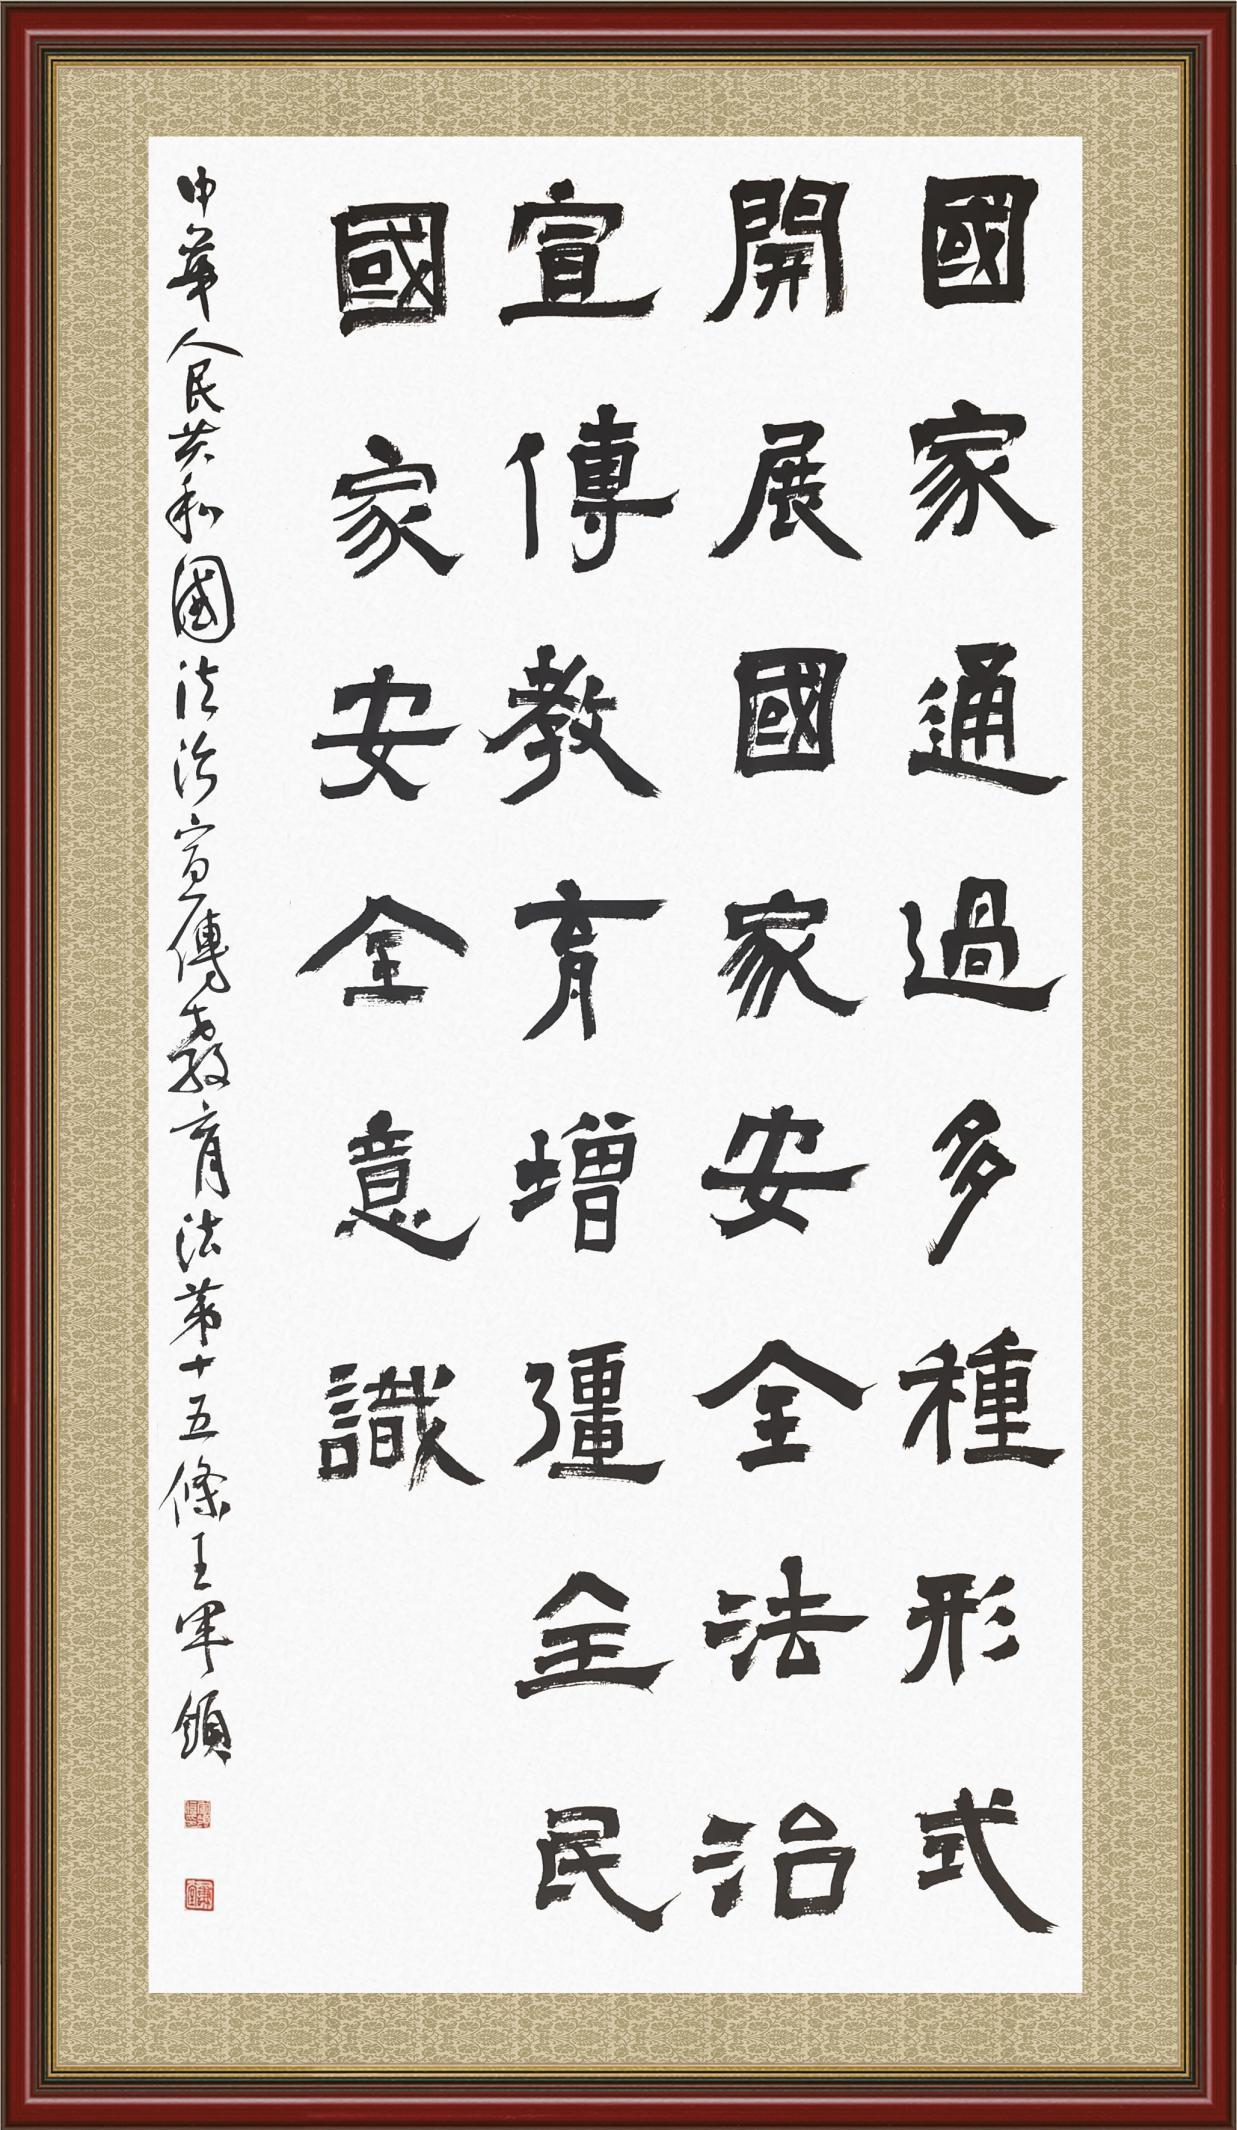 國家通過多種形式
開展國家安全法治
宣傳教育增彊全民
國家安全意識
中華人民共和國法治宣傳教育法第十五條王軍領